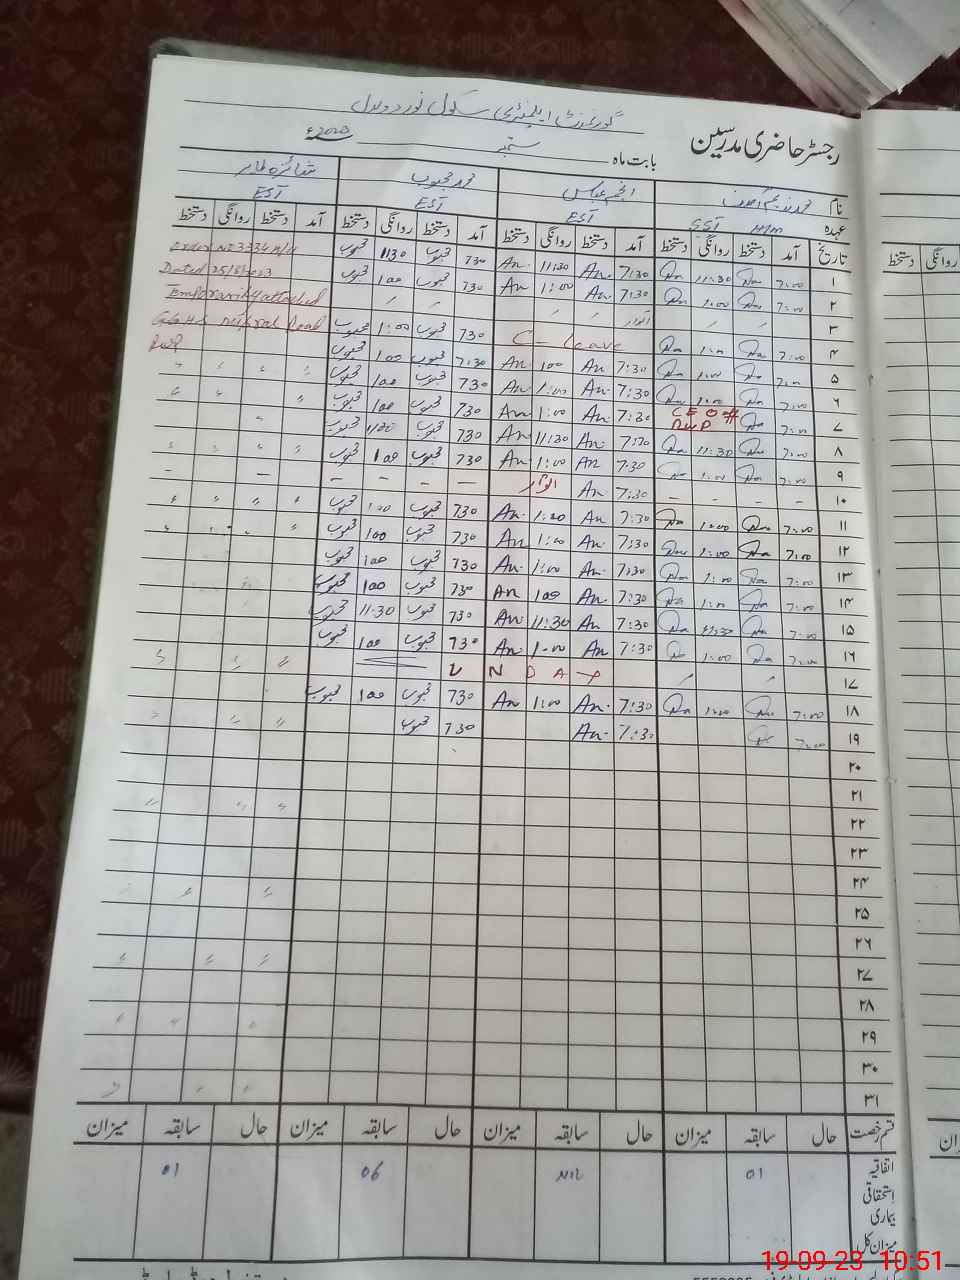 گورنمنٹ ایلیمنٹری سکول نور دولال
رجسٹر حاضری مدرسین
بابت ماہ ستمبر
نام محمد ندیم انجم عباس محمد محبوب
عہدہ SST EST EST EST
تاریخ آمد دستخط روانگی دستخط آمد دستخط روانگی دستخط آمد دستخط روانگی دستخط آمد دستخط روانگی دستخط
Order No 3334
Dated
Temporarily attached
۱ 7:00 11:30 7:30 An 11:30 An 730 محبوب 1130 محبوب
۲ 7:00 1:00 7:30 An 1:00 An 730 محبوب 100 محبوب
۳ اتوار
۴ 7:00 C-leave 730 محبوب 1:00 محبوب
۵ 7:00 1:00 7:30 An 100 An 7:30 محبوب 100 محبوب
۶ 7:00 1:00 7:30 An 1:00 An 730 محبوب 100 محبوب
۷ 7:00 CEO RWP 7:30 An 1:00 An 730 محبوب 100 محبوب
۸ 7:00 11:30 7:30 An 11:30 An 730 محبوب 1130 محبوب
۹ 7:00 1:00 7:30 An 1:00 An 730 محبوب 100 محبوب
۱۰ - - - - 7:30 An اتوار - - - -
۱۱ 7:00 1:00 7:30 An 1:00 An 730 محبوب 100 محبوب
۱۲ 7:00 1:00 7:30 An 1:00 An 730 محبوب 100 محبوب
۱۳ 7:00 1:00 7:30 An 1:00 An 730 محبوب 100 محبوب
۱۴ 7:00 1:00 7:30 An 100 An 730 محبوب 100 محبوب
۱۵ 7:00 11:30 7:30 An 11:30 An 730 محبوب 11:30 محبوب
۱۶ 7:00 1:00 7:30 An 1:00 An 730 محبوب 100 محبوب
۱۷ U N D A Y
۱۸ 7:00 1:00 7:30 An 1:00 An 730 محبوب 100 محبوب
۱۹ 7:00 7:30 An 730 محبوب
۲۰
۲۱
۲۲
۲۳
۲۴
۲۵
۲۶
۲۷
۲۸
۲۹
۳۰
۳۱
قسم رخصت حال سابقہ میزان حال سابقہ میزان حال سابقہ میزان حال سابقہ میزان
اتفاقیہ 01 NIL 06 01
استحقاقی
بیماری
میزان کل
19-09-23 10:51